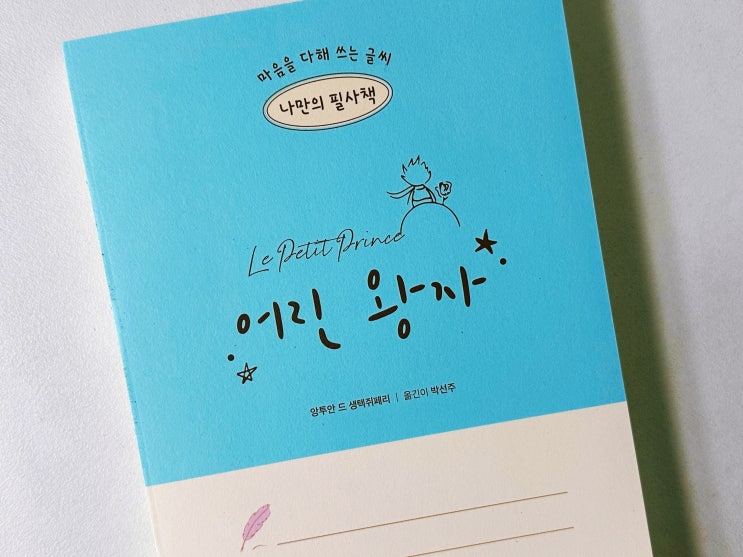 마음을 다해 쓰는 글씨
나만의 필사책
Le Petit Prince
어린 왕자
앙투안 드 생텍쥐페리 | 옮긴이 박선주